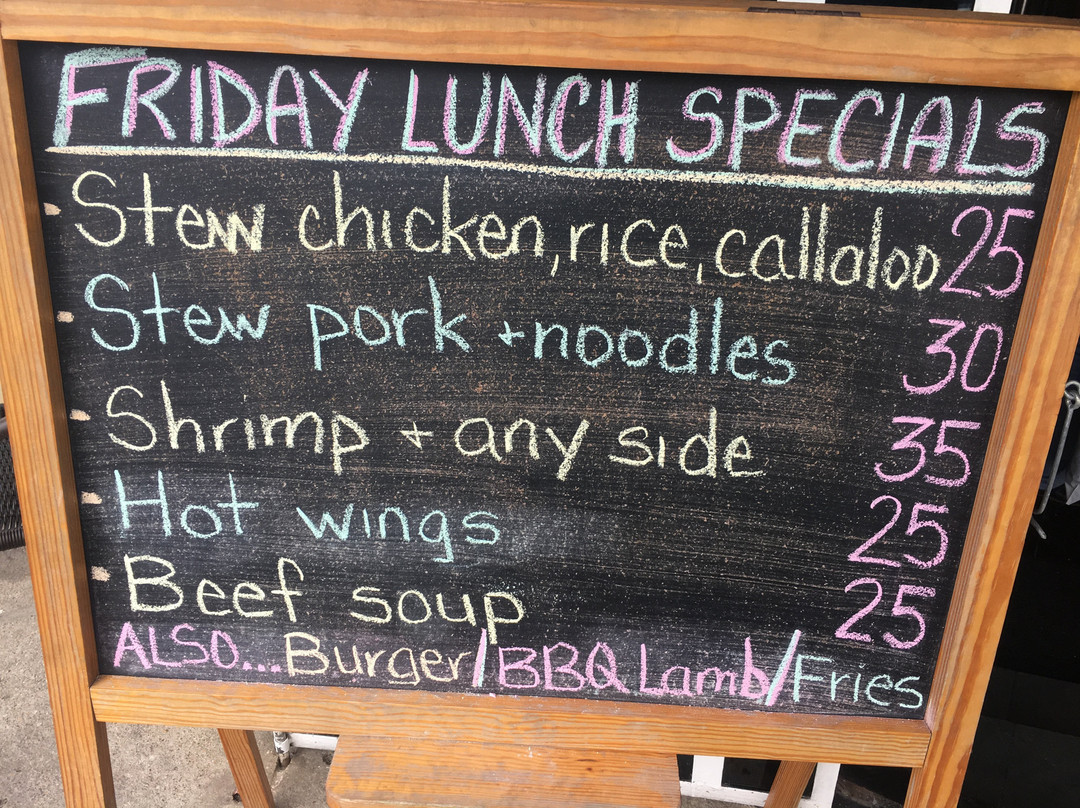 FRIDAY LUNCH SPECIALS
Stew chicken, rice, callaloo 25
Stew pork + noodles 30
Shrimp + any side 35
Hot wings 25
Beef soup 25
ALSO.... Burger/BBQ Lamb/Fries